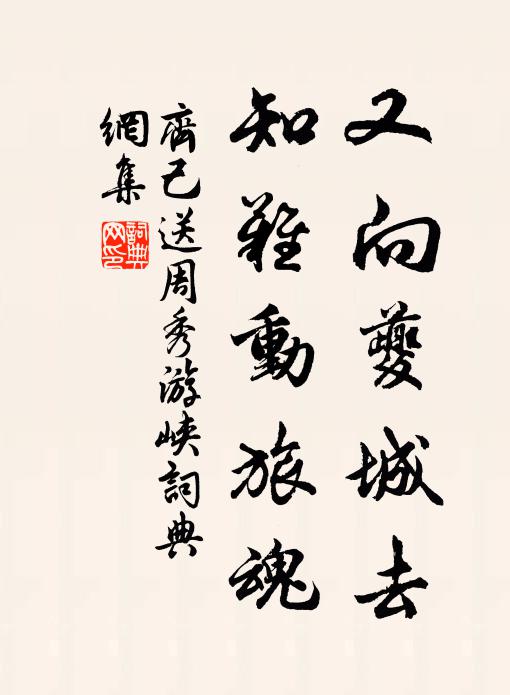 又向夔城去
知難動旅魂
齊己送周秀游峽詞典
網集
詞典網印